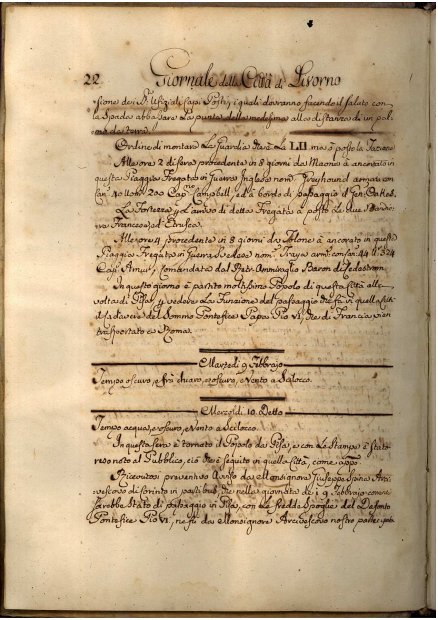 22 Giornale della Città di Livorno
sione dei Sig.i Ufiziali Capi Posti, i quali dovranno facendo il saluto con
la Spada abbassare la punta della medesima alla distanza di un pal-
mo da terra.
Ordine di montare la Guardia
Alle ore 2 di sera procedente in 8 giorni da Maone è ancorato in
questa Piaggia Fregata in Guerra Inglese nom.
Cap.no Campbell, ed a bordo di passaggio il Gen. Oakes.
La Fortezza p l'arrivo di detta Fregata à posto le due Bandie-
re Francese, ed Etrusca.
Alle ore 4 procedente in 8 giorni da Tolone è ancorato in questa
Piaggia Fregata in Guerra Svedese nom. Freya arm. con can. 44 u. 324
Cap. comandata dal Baron di Cedestrom.
In questo giorno è partito moltissimo Popolo di questa Città alla
volta di Pisa p vedere la Funzione del passaggio che fa in quella Cit-
tà il Cadavere del Sommo Pontefice Papa Pio VI, che di Francia vien
trasportato a Roma.
Martedì 9 Febbrajo
Tempo oscuro, e frà chiaro, e oscuro, e vento a Scilocco.
Mercoldì 10 Detto
Tempo acqua, e oscuro, e vento a Scilocco.
In questa sera è tornato il Popolo da Pisa, e con le Stampe è stato
reso noto al Pubblico, ciò che è seguito in quella Città, come app.o
Ricevutosi preventivo Avviso da Monsignore Giuseppe Spina Arci-
vescovo di Corinto in partibus, che nella giornata de i 9 Febbrajo corr.e
sarebbe stato di passaggio in Pisa, con le fredde Spoglie del Defonto
Pontefice Pio VI, ne fu da Monsignore Arcivescovo nostro partecipata